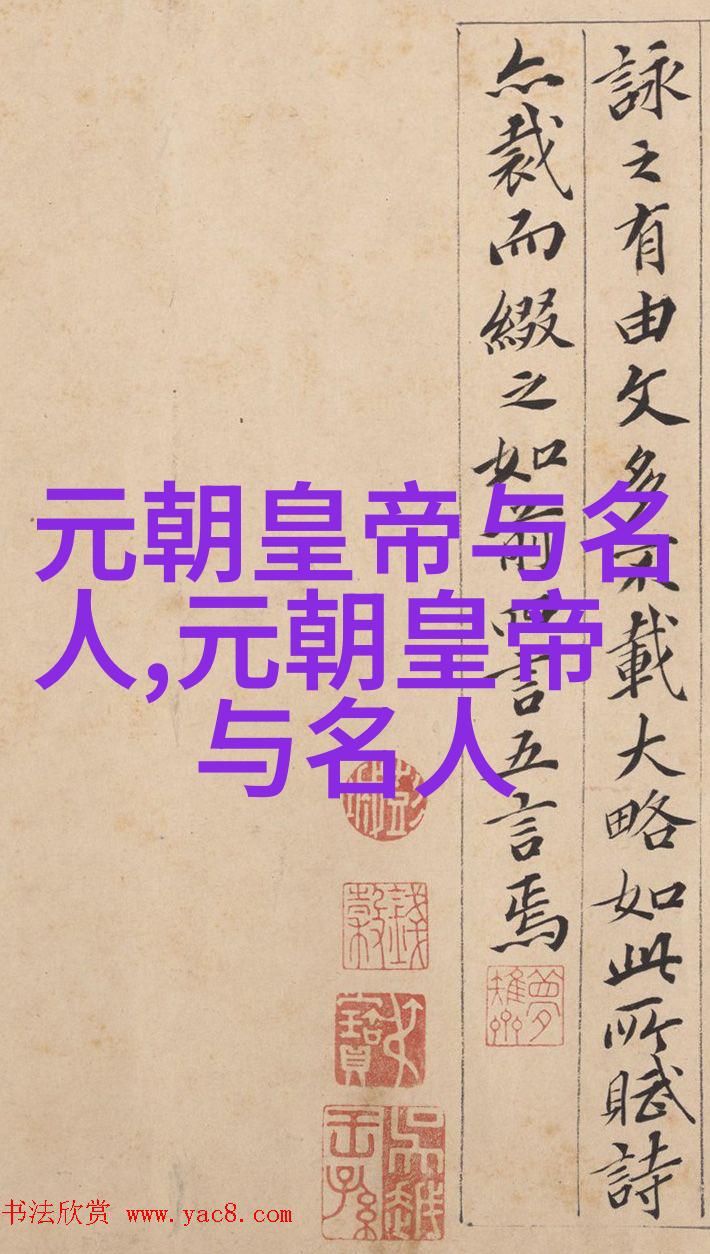 詠之有由文多不載大略如此所賦詩
亦裁而綴之如前四言五言焉
元朝皇帝与名
人,元朝皇帝
与名人
书法欣赏 www.yac8.com